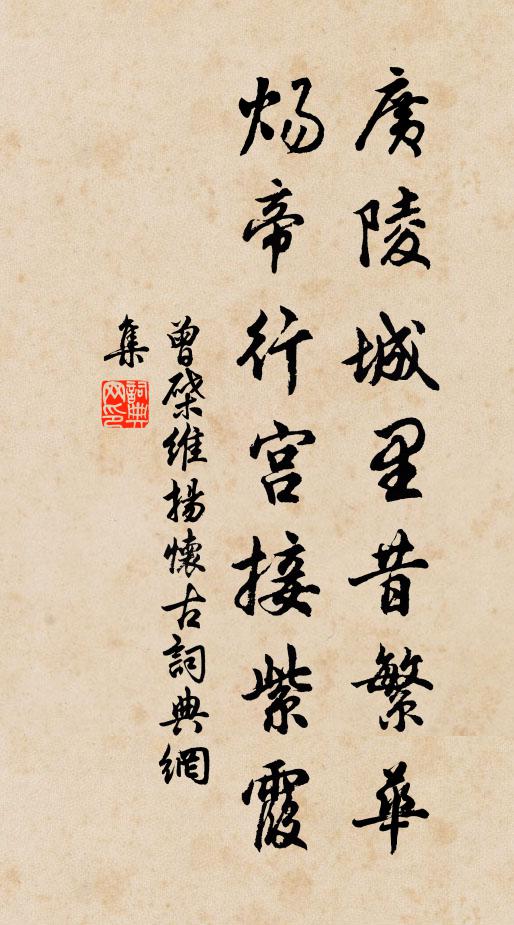 廣陵城里昔繁華
煬帝行宮接紫霞
曾棨維揚懷古詞典網
集
詞典網印